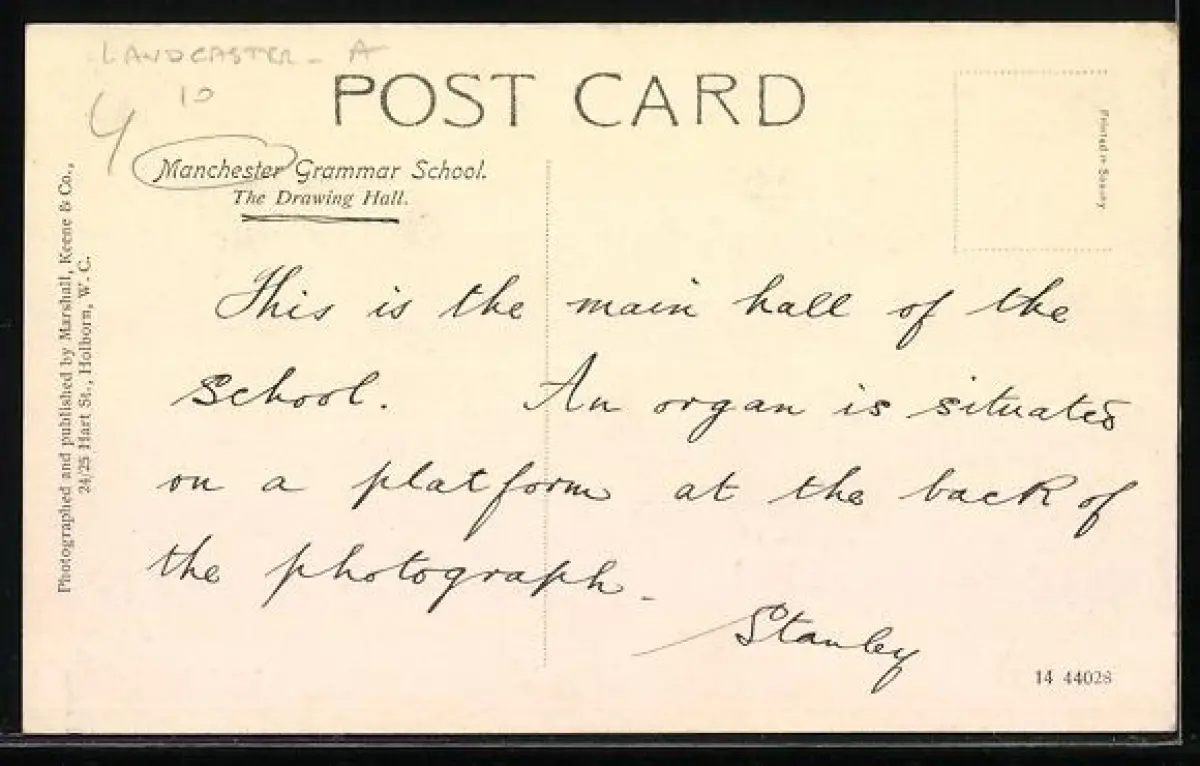 LANDCASTER - A
10
4
POST CARD
Manchester Grammar School.
The Drawing Hall.
Printed in Saxony
Photographed and published by Marshall, Keene & Co.,
24/25 Hart St., Holborn, W.C.
This is the main hall of the
school. An organ is situated
on a platform at the back of
the photograph.
Stanley
14 44028